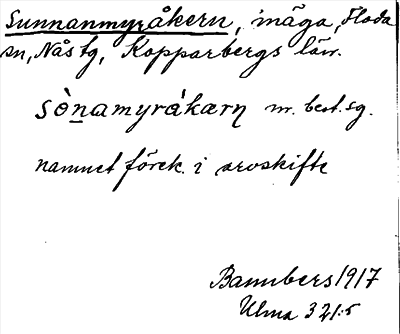 Sunnanmyråkern, inäga, Floda
sn, Nås tg, Kopparbergs län.
sò̀namyrákærn m. best. sg.
namnet förek. i arvskifte
Bannbers 1917
Ulma 321:5